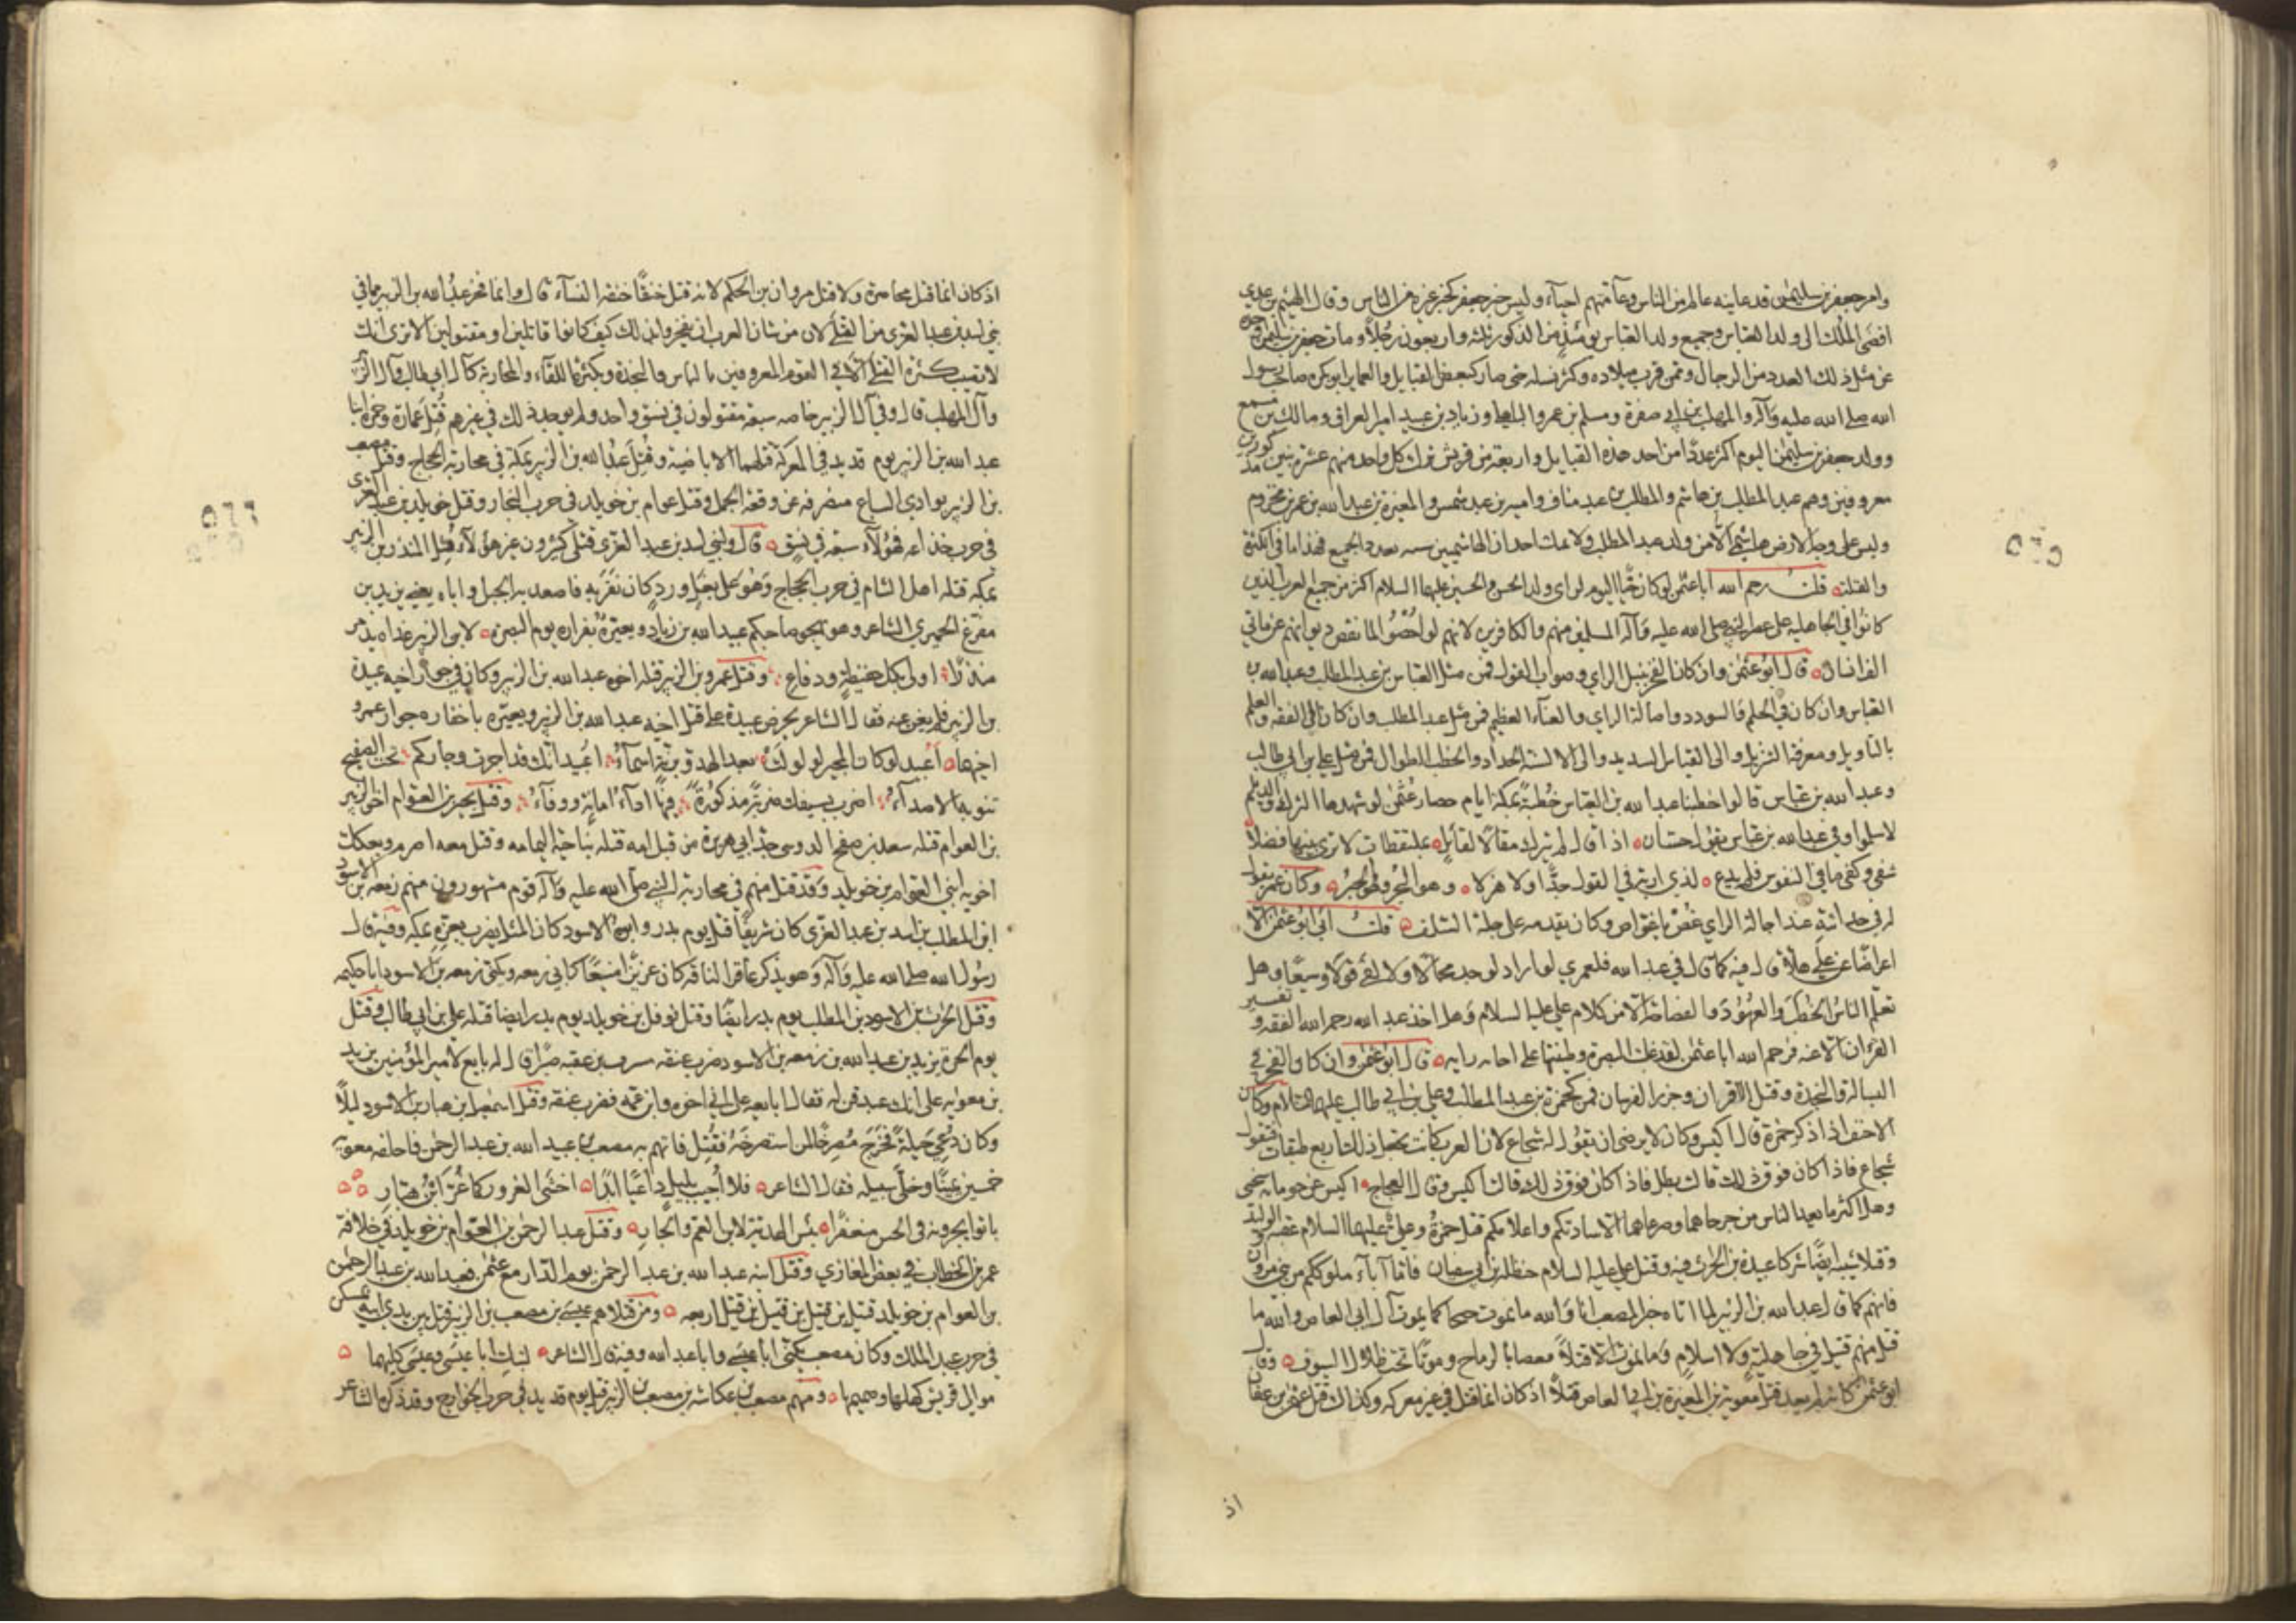 وامر جعفر بن سليمٰن قد عاينه عالم من الناس وعامتهم احياء وليس خبر جعفر كخبر غيره من الناس وقال الهيثم بن عدي
افضى الملك الى ولد العباس وجميع ولد العباس يومئذٍ من الذكور ثلثة واربعون رجلاً ومات جعفر بن سليمٰن وحده
عن مثل ذلك العدد من الرجال وممن قرب ميلاده وكثر نسله حتى صار كبعض القبايل والعماير ابو بكره صاحب رسول
الله صلى الله عليه وآله والمهلب بن ابي صفرة ومسلم بن عمرو الباهلي وزياد بن عبيد امير العراق ومالك بن مسمع
وولد جعفر بن سليمٰن اليوم اكثر عددًا من احد هذه القبايل واربعة من قريش ترك كل واحد منهم عشرة بنين مذكورين
معروفين وهم عبد المطلب بن هاشم والمطلب بن عبد مناف وامية بن عبد شمس والمغيرة بن عبد الله بن عمر بن مخزوم
وليس على وجه الارض هاشمي الا من ولد عبد المطلب ولا يشك احد ان الهاشميين عدد الجميع فهذا ما في الكثرة
والقلة قلت رحم الله ابا عثمٰن لو كان حيًّا اليوم لراى ولد الحسن والحسين عليهما السلام اكثر من جميع العرب الذين
كانوا في الجاهلية على عصر النبي صلى الله عليه وآله المسلمين منهم والكافرين لانهم لو احصوا لما نقص ديوانهم عن مائتي
الف انسان قال ابو عثمٰن وان كان الفخر بنبل الراي وصواب القول فمن مثل العباس بن عبد المطلب وعبد الله بن
العباس وان كان في الحلم والسودد واصالة الراي والغناء العظيم فمن مثل عبد المطلب وان كان الى الفقه والعلم
بالتاويل ومعرفة التنزيل والى القياس السديد والى الالسنة الحداد والخطب الطوال فمن مثل علي بن ابي طالب
وعبد الله بن عباس قالوا خطبنا عبد الله بن العباس خطبةً بمكة ايام حصار عثمٰن لو شهدها الترك والديلم
لاسلموا وفي عبد الله بن عباس يقول حسّان اذا قال لم يترك مقالاً لقائلٍ بملتقطات لا ترى بينها فضلاً
شفى وكفى ما في النفوس فلم يدع لذي اربة في القول جدًّا ولا هزلا وهو البحر وهو الحبر وكان عمر يقول
له في حداثته عند اجالة الراي غص يا غواص وكان يقدمه على جلة السلف قلت ابى ابو عثمٰن الا
اعراضًا عن علي هلا قال فيه كما قال في عبد الله فلعمري لو اراد لوجد مجالاً ولالفى قولاً وسيعًا وهل
تعلم الناس الخطب والعهود والفصاحة الا من كلام علي عليه السلام وهل اخذ عبد الله رحمه الله الفقه وتفسير
القرآن الا عنه فرحم الله ابا عثمٰن لقد غلبت البصرة وطينتها على اصابه رايه قال ابو عثمٰن وان كان الفخر في
البسالة والنجدة وقتل الاقران وجزر الفرسان فمن كحمزة بن عبد المطلب وعلي بن ابي طالب عليهما السلام وكان
الاحنف اذا ذكر حمزة قال اكيس وكان لا يرضى ان يقول له شجاع لان العرب كانت تجعل ذلك اربع طبقات فتقول
شجاع فاذا كان فوق ذلك قالت بطل فاذا كان فوق ذلك قالت اكيس وقال العجاج اكيس عن حوبائه سخي
وهل اكثر ما يعد الناس من جرحاهما وصرعاهما الا سادتكم واعلامكم قتل حمزة وعلي عليهما السلام عتبة والوليد
وقتلا شيبه ايضًا شركا عبيدة بن الحرث فيه وقتل علي عليه السلام حنظلة بن ابي سفيان فاما آباء ملوككم من بني مروان
فانهم كما قال عبد الله بن الزبير لما اتاه خبر المصعب انا والله ما نموت حبجا كما يموت آل ابي العاص والله ما
قتل منهم قتيل في جاهليةٍ ولا اسلام وما نموت الا قتلاً قعصا بالرماح وموتًا تحت ظلال السيوف وقال
ابو عثمٰن كانه لم يعد قتل معوية بن المغيرة بن ابي العاص قتلاً اذ كان انما قتل في غير معركه وكذلك قتل عثمٰن بن عفان
اذ
اذ كان انما قتل محاصرة ولا قتل مروان بن الحكم لانه قتل خنقًا خنقه النساء قال وانما فخر عبد الله بن الزبير بما في
بني اسد بن عبد العزى من القتلى لان من شان العرب ان يفخروا بذلك كيف كانوا قاتلين او مقتولين الا ترى انك
لا تصيب كثرة القتلى الا في القوم المعروفين بالباس والنجدة وبكثرة اللقاء والمحاربة كآل ابي طالب وآل الزبير
وآل المهلب قال وفي آل الزبير خاصه سبعة مقتولون في نسق واحد ولم يوجد ذلك في غيرهم قُتل عمارة وحمزة ابنا
عبد الله بن الزبير يوم قديد في المعركة قتلهما الاباضية وقُتل عبد الله بن الزبير بمكة في محاربة الحجاج وقتل مصعب
بن الزبير بوادي السباع منصرفه عن وقعة الجمل وقتل عوام بن خويلد في حرب الفجار وقتل خويلد بن عبد العزى
في حرب خذاعه فهؤلاء سبعة في نسقٍ قال وفي بني اسد بن عبد العزى قتلى كثيرون غير هؤلاء قُتل المنذر بن الزبير
بمكه قتله اهل الشام في حرب الحجاج وهو على بغل ورد كان نفر به فاصعد به الجبل واياه يعني يزيد بن
مفرغ الحميري الشاعر وهو يهجو صاحبكم عبيد الله بن زياد ويعيّره بفراره يوم البصرة لابن الزبير غداة يذمر
منذرًا اولى بكل حفيظةٍ ودفاعِ وقتل عمرو بن الزبير قتله اخوه عبد الله بن الزبير وكان في جوار اخيه عبيدة
بن الزبير فلم يغن عنه فقال الشاعر يحرض عبيدة على قتل اخيه عبد الله بن الزبير ويعيّره باخفاره جوار عمرو
اخيهما أعبيد لو كان المجير لولولت بعد الهدو برنةٍ اسماءُ اعبيد انك قد اجرت وجاركم تحت الصفيح
تنوبه الاصداءُ اضرب بسيفك ضربة مذكورةً فيها اداءُ امانةٍ ووفاءُ وقتل بجير بن العوام اخو الزبير
بن العوام قتله سعد بن صفح الدوسي جد ابي هريرة من قبل امه قتله بناحية اليمامه وقتل معه اصرم وبعكك
اخويه ابني العوام بن خويلد وقد قتل منهم في محاربة النبي صلى الله عليه وآله قوم مشهورون منهم زمعه بن الاسود
ابن المطلب بن اسد بن عبد العزى كان شريفًا قتل يوم بدر وابوه الاسود كان المثل يضرب بعزه بمكه وفيه قال
رسول الله صلى الله عليه وآله وهو يذكر عاقر الناقه كان عزيزًا منيعًا كابي زمعه ويكنى زمعه بن الاسود ابا حكيمه
وقتل الحرث بن الاسود بن المطلب يوم بدر ايضًا وقتل نوفل بن خويلد يوم بدر ايضًا قتله علي بن ابي طالب وقتل
يوم الحرة يزيد بن عبد الله بن زمعه بن الاسود ضرب عنقه مسرف بن عقبه صبرًا قال له بايع لامير المؤمنين يزيد
بن معويه على انك عبد قن له فقال ابايعه على اني اخوه وابن عمه فضرب عنقه وقتل اسمعيل بن هبار بن الاسود ليلاً
وكان دُعي حيلةً فخرج مُصرخًا لمن استصرخه فقُتل فاتهم به مصعب بن عبد الرحمٰن فاحلفه معويه
خمسين يمينًا وخلى سبيله فقال الشاعر فلا اُجيب بليلٍ داعيًا ابدًا اخشى الغرور كما غُرّ ابن هبّار
باتوا يجرونه في الحش منعفرًا بئس الهدية لابن العم والجار وقتل عبد الرحمٰن بن العوام بن خويلد في خلافة
عمر بن الخطاب في بعض المغازي وقتل ابنه عبد الله بن عبد الرحمٰن يوم الدّار مع عثمٰن فعبد الله بن عبد الرحمٰن
بن العوام بن خويلد قتيل بن قتيل بن قتيل بن قتيل اربعه ومن قتلاهم عيسى بن مصعب بن الزبير قتل بين يدي ابيه بمسكن
في حرب عبد الملك وكان مصعب يكنى ابا عيسى وابا عبد الله وفيه قال الشاعر لتبكِ ابا عيسى وعيسى كليهما
موالي قريش كهلها وصميمها ومنهم مصعب بن عكاشه بن مصعب بن الزبير قتل يوم قديد في حرب الخوارج وقد ذكره الشاعر